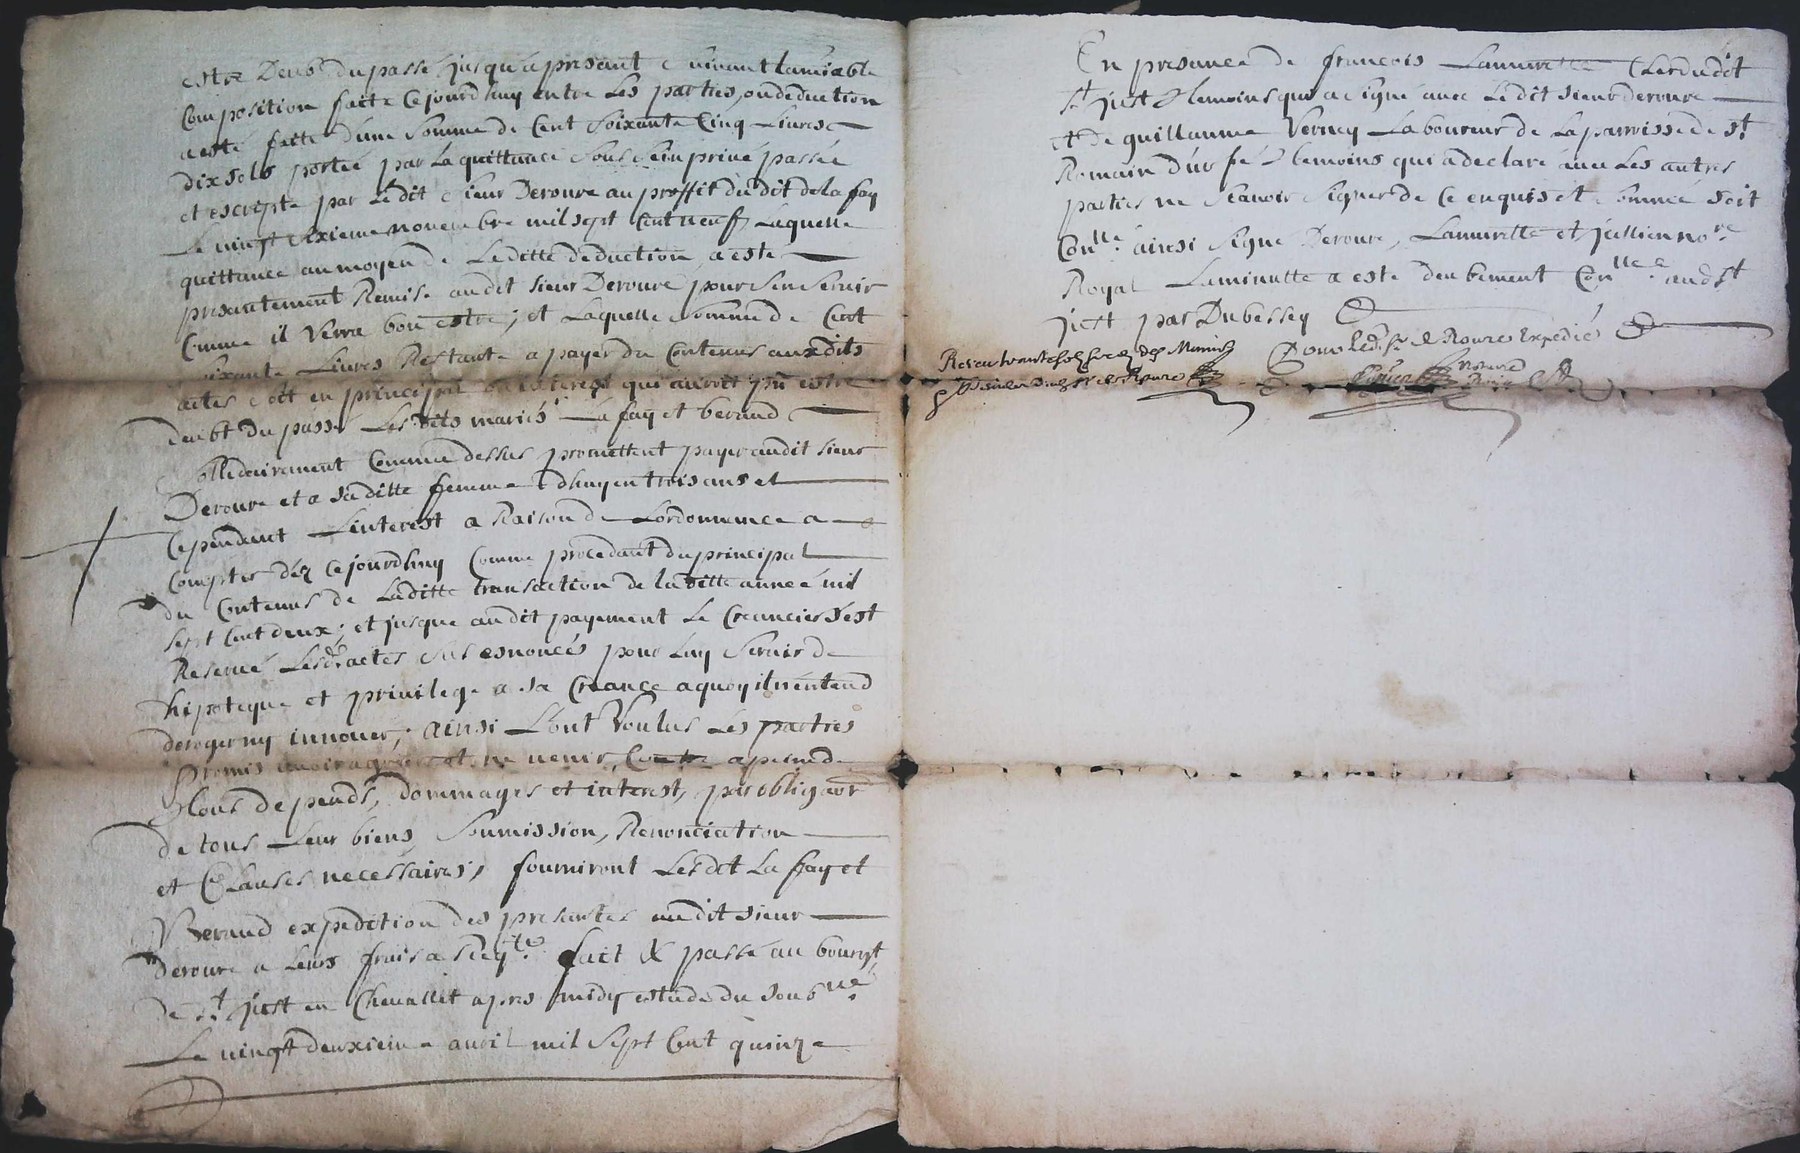 estre Deub du passé jusqu'a present suivant lamiable
Composition faite Cejourdhuy entre Les parties, ou deduction
a esté faite d'une Somme de Cent Soixante Cinq Livres
dix sols portée par La quittance Sous Sein privé passée
et escripte par Le dit sieur Deroure au proffit du dit de la fay
Le vingt sixieme novembre mil sept Cent neuf Laquelle
quittance au moyen de Leditte deduction a este
presentement Remise audit sieur Deroure pour Sen Servir
Comme il Verra bon estre; et Laquelle Somme de Cent
soixante Livres Restante a payer du Contenus auxdits
actes soit en principal ou interest qui auroit pu estre
deubt du passé Lesdits mariés La fay et beraud
sollidairement Comme dessus promettent payer audit sieur
Deroure et a saditte femme dhuy en trois ans et
Cependant L'interest a Raison de Lordonnance a
Compter dez Cejourdhuy Comme procedant du principal
du Contenus de Laditte transaction de laditte année mil
sept Cent deux; et jusque audit payement Le Creancier s'est
Reservé Lesd. actes sus esnoncés pour Luy Servir de
hipoteque et privilege a sa Creance a quoy il n'entend
deroger ny innover; ainsi L'ont Voulus Les parties
promis avoir agreé et ne venir Contre a peine de
tous depends, dommages et interest, par obligaon
de tous Leur biens, Soumission, Renonciation
et Clauses necessaires, fourniront Lesdit La fay et
Beraud expedition des presentes audit sieur
deroure a Leurs frais a Req.te fait & passé au bourgt
de S.t just en Chevallet apres midy estude du soub.né
Le vingt deuxieme avril mil Sept Cent quinze
En presance de francois Lamurette Clerdudit
S.t just temoins qui a signé avec Ledit sieur deroure
et de guillaume Verney Laboureur de La parroisse de S.t
Romain d'urfé temoins qui a declaré avec Les autres
parties ne Scavoir Signer de Ce enquis et sommé Soit
Con.llé ainsi Signé Deroure, Lamurette et jullien no.re
Royal Laminutte a este deubement Con.llée aud S.t
just par Dubessey
Pour Led. Sr. de Roure Expedié